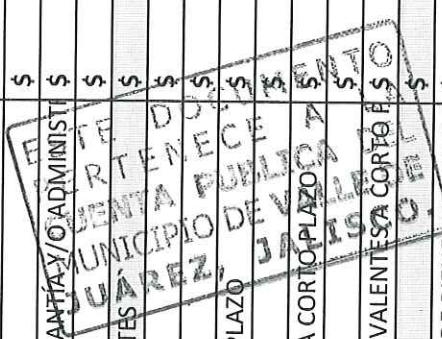 $
ANTÍA Y/O ADMINISTR $
$
TES $
$
$
PLAZO $
$
A CORTO PLAZO $
$
VALENTES A CORTO P $
$
ESTE DOCUMENTO
PERTENECE A
CUENTA PUBLICA DEL
MUNICIPIO DE VALLE DE
JUÁREZ, JALISCO.